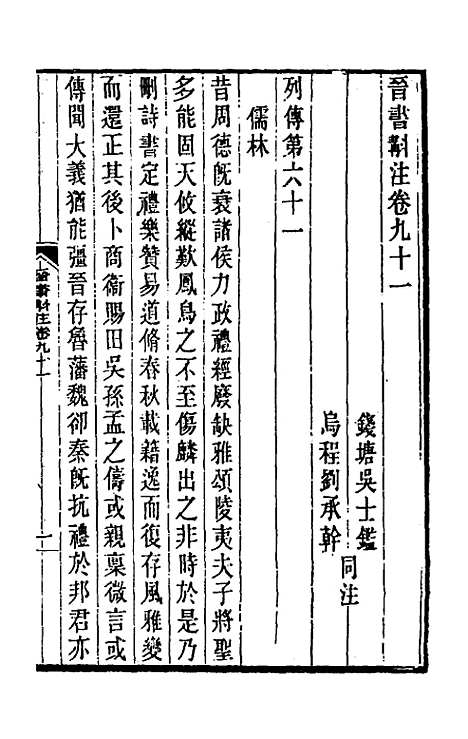 晉書斠注卷九十一
錢塘吳士鑑
烏程劉承幹
同注
列傳第六十一
儒林
昔周德旣衰諸侯力政禮經廢缺雅頌陵夷夫子將聖
多能固天攸縱歎鳳鳥之不至傷麟出之非時於是乃
刪詩書定禮樂贊易道脩春秋載籍逸而復存風雅變
而還正其後卜商衞賜田吳孫孟之儔或親稟微言或
傳聞大義猶能彊晉存魯藩魏卻秦旣抗禮於邦君亦
晉書斠注卷九十一
一